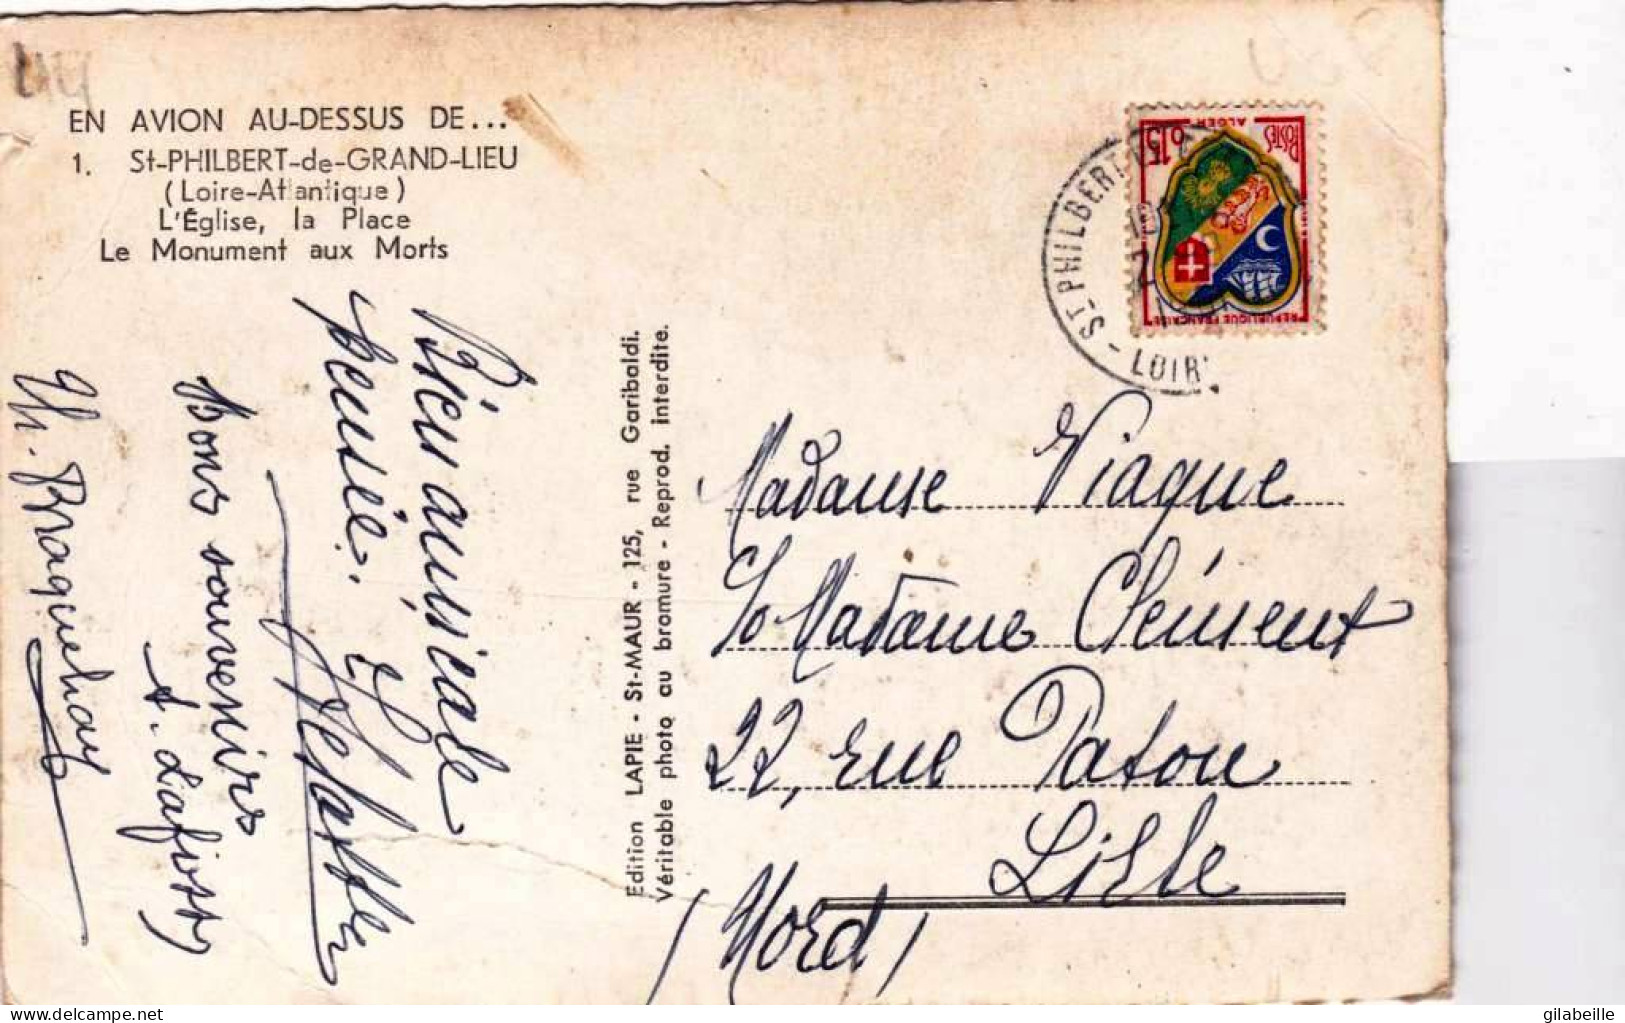 EN AVION AU-DESSUS DE...
1. St-PHILBERT-de-GRAND-LIEU
(Loire-Atlantique)
L'Église, la Place
Le Monument aux Morts
Bien amicale
pensée.
Bons souvenirs
Edition LAPIE - St-MAUR - 125, rue Garibaldi.
Véritable photo au bromure - Reprod. interdite.
POSTES
0,15
ALGER
REPUBLIQUE FRANÇAISE
ST-PHILBERT
LOIR
Madame Viaque
c/o Madame Clément
22, rue Patou
Lille
(Nord)
gilabeille